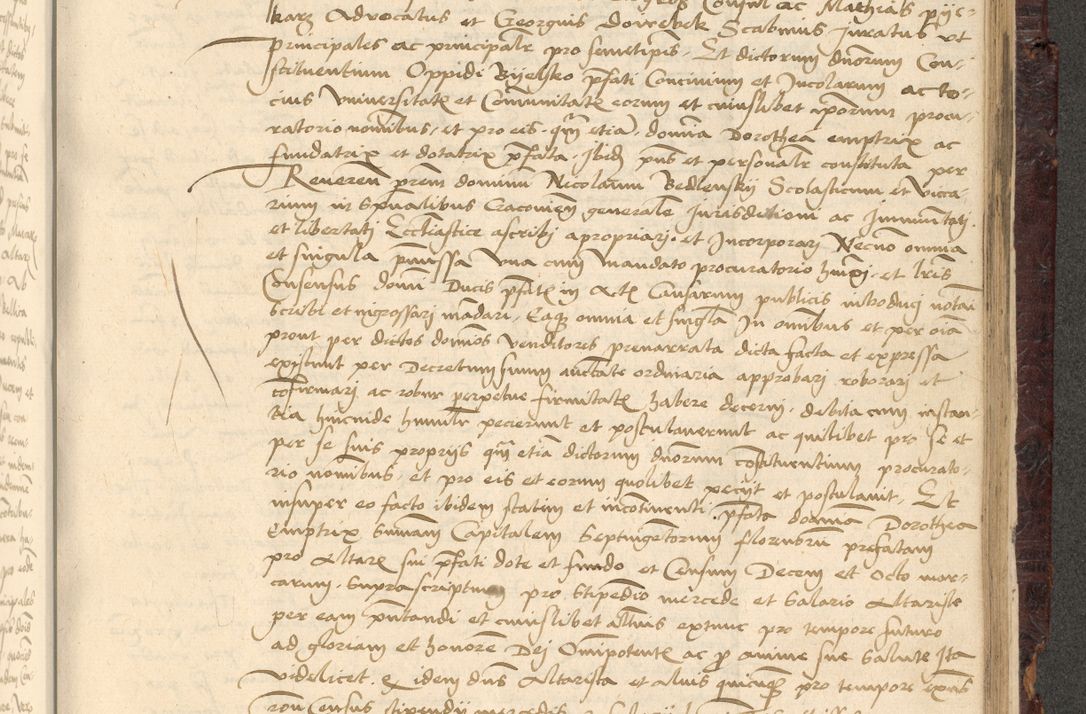 karz Advocatus et Georgius Doirebek Scabinus Juratus ut
principales ac principalr pro semetipsis. Et dictorum dnorum Con-
stituentium Oppidi Byelsko pfati Conciuium et Incolarum ac to-
cius Vniuersitatis et Comunitatis eorum et cuiuslibet ipsorum procu-
ratorio nomibus, et pro eis. qm etia. domna Dorothea emptrix ac
fundatrix et dotatrix pfata. Ibid pns et personalr constituta per
Reueren prem dominum Nicolaum Bedlenskij Scolasticum et Vica-
rium in spualibus Cracouien generale Jurisdictioni ac Immunitati
et libertati Ecclastice ascribi apropriari et Incorporari Necno omnia
et singula pmissa vna cum mandato procuratorio et lris
Consensus domni Ducis pfati in Acta Causarum publicis
scribi et ingrossari mandari. Eaque omnia et singla In omibus et per oia
prout per dictos domnos venditores prenarrata dicta facta et expressa
existunt per Decretum suum auctate ordinaria approbari roborari et
cofirmari ac robur perpetue firmitatis habere decerni. debita cum instan-
tia hincinde humilr pecierunt et postulauerunt ac quilibet pro se et
per se suis proprys qm etia dictorum dnorum costituentium procurato-
rio nomibus et pro eis et eorum quolibet pecyt et postulauit. Et
insuper eo facto ibidem statim et incotinenti pfata domna Dorothea
Emptrix Summam Capitalem Septingetorum florenorum prefatam
pro Altaris sui pfati dote et fundo et Censum Decem et Octo mar-
carum. Suprascriptum pro Stipedio mercede et Salario Altariste
per eam pntandi et cuiuslibet alterius extunc pro tempore futuro
ad gloriam et honore Dei Omipotentis ac p anime sue salute Ita
videlicet. q idem dns Altarista et alius quicuq pro tempore exns